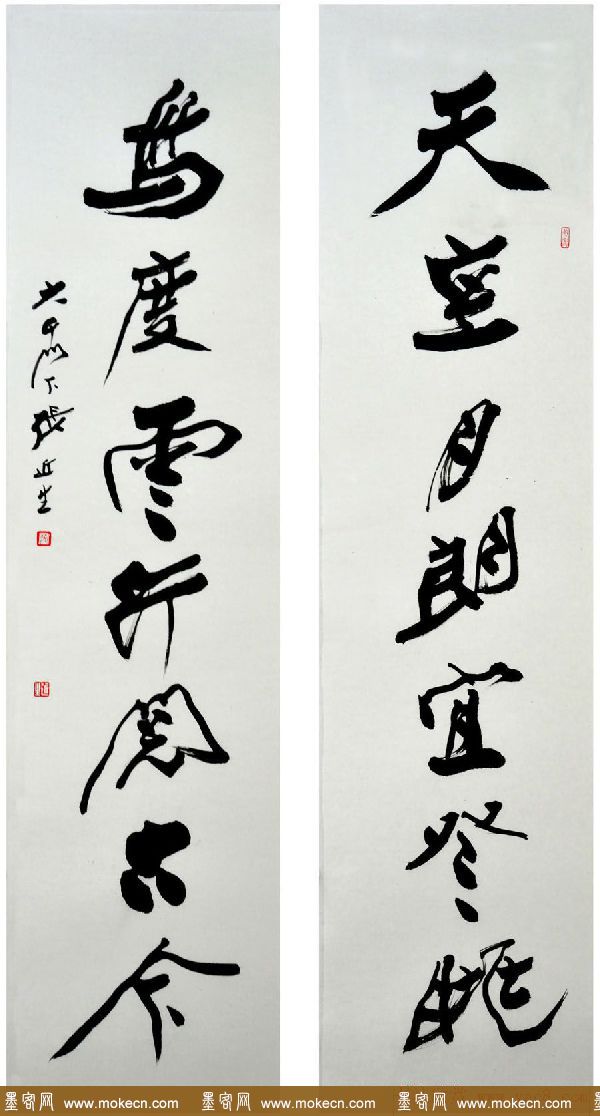 天空月朗宜登眺
鳥度雲行閱古今
門下張近生
墨客网 www.mokecn.com 墨客网 www.mokecn.com 墨客网 www.mokecn.com